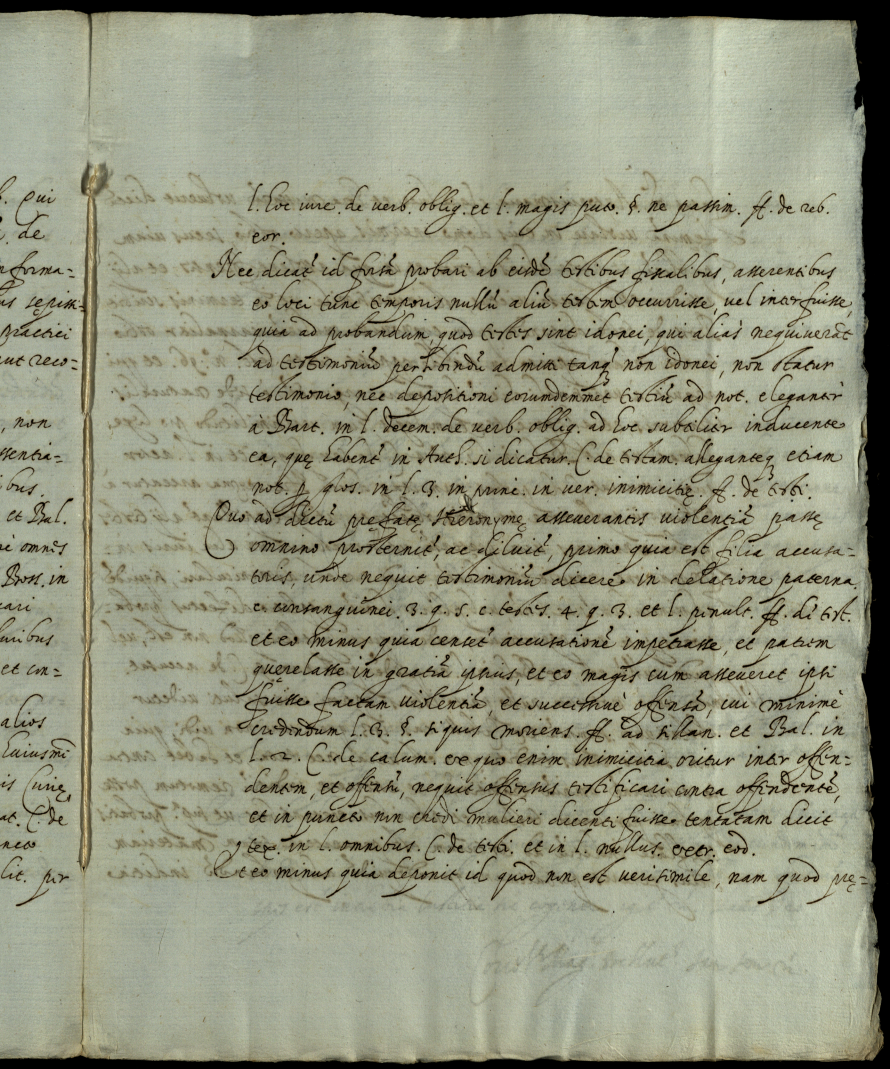 l. hoc iure. de verb. oblig. et l. magis puto. §. ne passim. ff. de reb.
eor.
Nec dicat˜ id forsã probari ab eisdẽ testibus fiscalibus, asserentibus
eo loci tunc temporis nullũ aliũ testem occurrisse, vel interfuisse,
quia ad probandum, quod testes sint idonei, qui alias nequiverãt
ad testimoniũ perhibendũ admitti tanq̃ non idonei, non statur
testimonio, nec depositioni eorumdemmet testiũ ad not. elegantr̃
à Bart. in l. decem. de verb. oblig. ad hoc subtilitr̃ inducente
ea, quę habent˜ in Auth. si dicatur. C. de testam. alleganteq3 etiam
not. p glos. in l. 3. in princ. in ver. inimicitię. ff. de testi.
Quo ad dictũ prefatę Hieronymę asseverantis violentiã passę
omnino prosternit˜, ac diluit˜, primo quia est filia accusa=
toris, unde nequit testimoniũ dicere in delatione paterna
c. consanguinei. 3. q. 5. c. testes. 4. q. 3. et l. pinult. ff. di test.
et eo minus quia censet˜ accusationẽ impetrasse, et patrem
querelasse in gratiã ipsius, et eo magis cum asseveret ipsi
fuisse factam violentiã, et successivè offensã, cui minimè
credendum l. 3. §. si quis moriens. ff. ad sillan. et Bal. in
l. 2. C. de calum. ex quo enim inimicitia oritur inter offen=
dentem, et offensũ, nequit offensus testificari contra offendentẽ,
et in puncto non credi mulieri dicenti fuisse tentatam dicit
tex. in l. omnibus. C. de testi. et in l. nullus. extr. eod.
Et eo minus quia deponit id quod non est verisimile, nam quod prę=
Qui
de
nforma=
practici
ut reco=
, non
ssentia=
ibus.
et Bal.
omnes
Boss. in
cari
et con=
alios
huiusmĩ
is Curię
at. C. de
lit. per